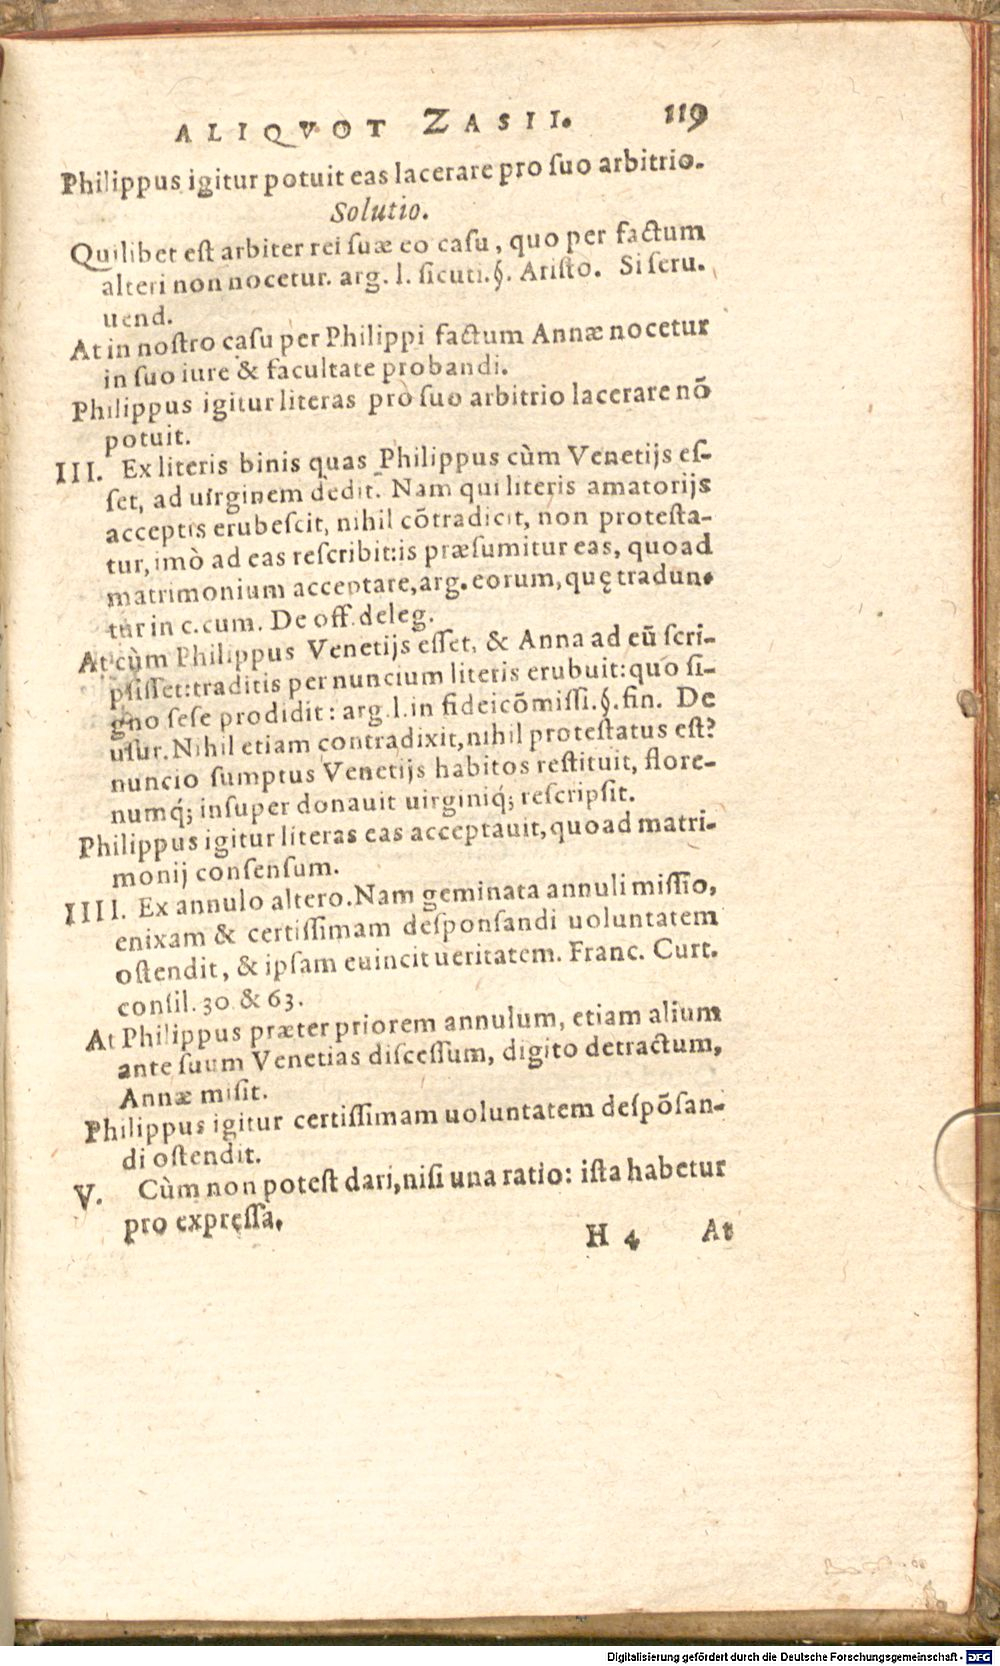 ALIQVOT ZASII. 119
Philippus igitur potuit eas lacerare pro ſuo arbitrio.
Solutio.
Quilibet eſt arbiter rei ſuæ eo caſu, quo per factum
alteri non nocetur. arg. l. ſicuti. §. Ariſto. Si ſeru.
uend.
At in noſtro caſu per Philippi factum Annæ nocetur
in ſuo iure & facultate probandi.
Philippus igitur literas pro ſuo arbitrio lacerare nõ
potuit.
III. Ex literis binis quas Philippus cùm Venetijs eſ-
ſet, ad uirginem dedit. Nam qui literis amatorijs
acceptis erubeſcit, nihil cõtradicit, non proteſta-
tur, imò ad eas reſcribit: is præſumitur eas, quoad
matrimonium acceptare, arg. eorum, quę tradun-
tur in c. cum. De off. deleg.
At cùm Philippus Venetijs eſſet, & Anna ad eũ ſcri-
pſiſſet: traditis per nuncium literis erubuit: quo ſi-
gno ſeſe prodidit: arg. l. in fideicõmiſſi. §. fin. De
uſur. Nihil etiam contradixit, nihil proteſtatus eſt?
nuncio ſumptus Venetijs habitos reſtituit, flore-
numq́; inſuper donauit uirginiq́; reſcripſit.
Philippus igitur literas eas acceptauit, quoad matri-
monij conſenſum.
IIII. Ex annulo altero. Nam geminata annuli miſſio,
enixam & certiſſimam deſponſandi uoluntatem
oſtendit, & ipſam euincit ueritatem. Franc. Curt.
conſil. 30 & 63.
At Philippus præter priorem annulum, etiam alium
ante ſuum Venetias diſceſſum, digito detractum,
Annæ miſit.
Philippus igitur certiſſimam uoluntatem deſpõſan-
di oſtendit.
V. Cùm non poteſt dari, niſi una ratio: iſta habetur
pro expreſſa.
H 4 At
Digitalisierung gefördert durch die Deutsche Forschungsgemeinschaft - DFG